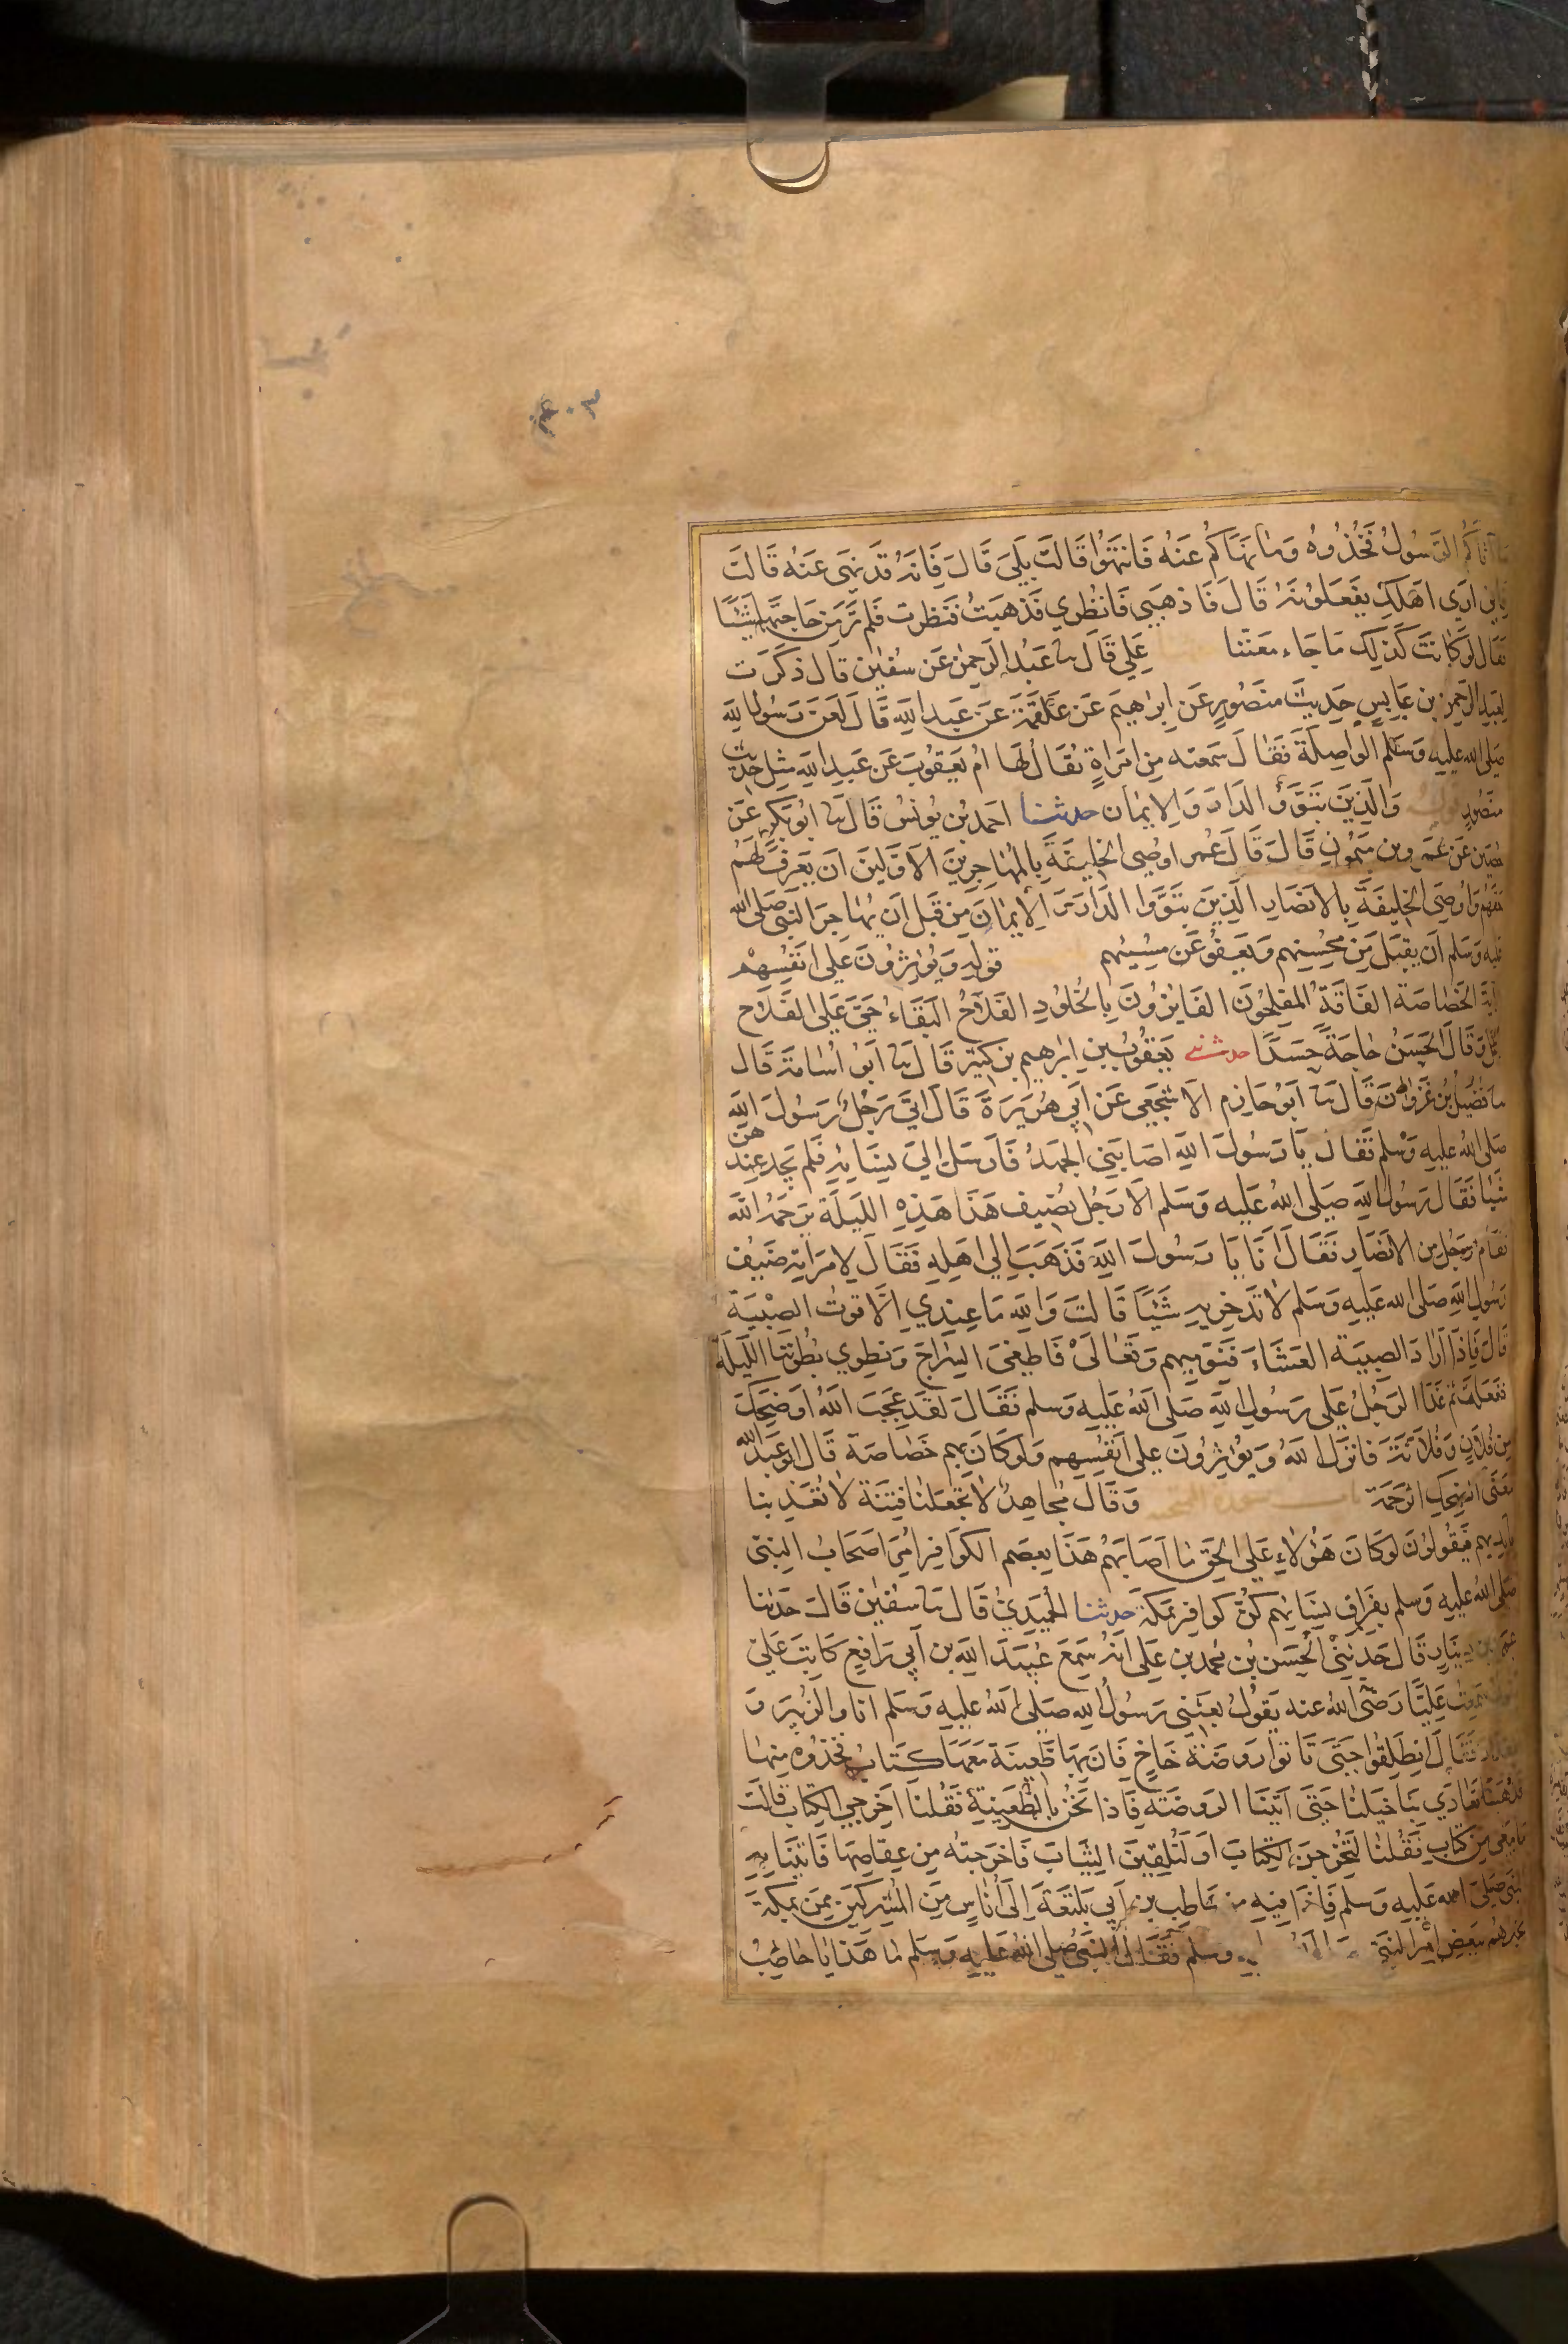 ٤٠٣
ما آتاكم الرسول فخذوه وما نهاكم عنه فانتهوا قالت بلى قال فانه قد نهى عنه قالت
فاني ارى اهلك يفعلونه قال فاذهبي فانظري فذهبت فنظرت فلم تر من حاجتها شيئا
فقال لو كانت كذلك ما جاء معتنا علي قال ثنا عبد الرحمن عن سفين قال ذكرت
لعبد الرحمن بن عابس حديث منصور عن ابراهيم عن علقمة عن عبد الله قال لعن رسول الله
صلى الله عليه وسلم الواصلة فقال سمعته من امراة يقال لها ام يعقوب عن عبد الله مثل حديث
منصور والذين تبوؤ الدار والايمان حدثنا احمد بن يونس قال ثنا ابو بكر عن
حصين عن عمرو بن ميمون قال قال عمر اوصي الخليفة بالمهاجرين الاولين ان يعرف لهم
حقهم واوصي الخليفة بالانصار الذين تبووا الدار والايمان من قبل ان يهاجر النبي صلى الله
عليه وسلم ان يقبل من محسنهم ويعفو عن مسيئهم قوله ويؤثرون على انفسهم
الخصاصة الفاقة المفلحون الفايزون بالخلود الفلاح البقاء حي على الفلاح
عجل وقال الحسن حاجة حسدا حدثني يعقوب بن ابرهيم بن كثير قال ثنا ابو اسامة قال
ثنا فضيل بن غزوان قال ثنا ابو حازم الاشجعي عن ابي هريرة قال اتى رجل رسول الله
صلى الله عليه وسلم فقال يا رسول الله اصابني الجهد فارسل الى نسايه فلم يجد عندهن
شيا فقال رسول الله صلى الله عليه وسلم الا رجل يضيف هذا هذه الليلة يرحمه الله
فقام رجل من الانصار فقال انا يا رسول الله فذهب الى اهله فقال لامراته ضيف
رسول الله صلى الله عليه وسلم لا تدخريه شيئا قالت والله ما عندي الا قوت الصبية
قال فاذا اراد الصبية العشاء فنوميهم وتعالى فاطفئ السراج ونطوي بطوننا الليلة
ففعلت ثم غدا الرجل على رسول الله صلى الله عليه وسلم فقال لقد عجب الله او ضحك
من فلان وفلانة فانزل الله ويؤثرون على انفسهم ولو كان بهم خصاصة قال ابو عبد الله
يعني الضحك الرحمة وقال مجاهد لا تجعلنا فتنة لا تعذبنا
بايديهم فيقولون لو كان هؤلاء على الحق ما اصابهم هذا بعصم الكوافر امر اصحاب النبي
صلى الله عليه وسلم بفراق نسايهم كن كوافر بمكة حدثنا الحميدي قال ثنا سفين قال حدثنا
عمرو بن دينار قال حدثني الحسن بن محمد بن علي انه سمع عبيد الله بن ابي رافع كاتب علي
يقول سمعت عليا رضى الله عنه يقول بعثني رسول الله صلى الله عليه وسلم انا والزبير و
المقداد فقال انطلقوا حتى تاتوا روضة خاخ فان بها ظعينة معها كتاب فخذوه منها
فذهبنا تعادي بنا خيلنا حتى اتينا الروضة فاذا نحن بالظعينة فقلنا اخرجي الكتاب قالت
ما معي من كتاب فقلنا لتخرجن الكتاب او لنلقين الثياب فاخرجته من عقاصها فاتينا به
النبي صلى الله عليه وسلم فاذا فيه من حاطب بن ابي بلتعة الى اناس من المشركين ممن بمكة
يخبرهم ببعض امر النبي وسلم فقال النبي صلى الله عليه وسلم ما هذا يا حاطب